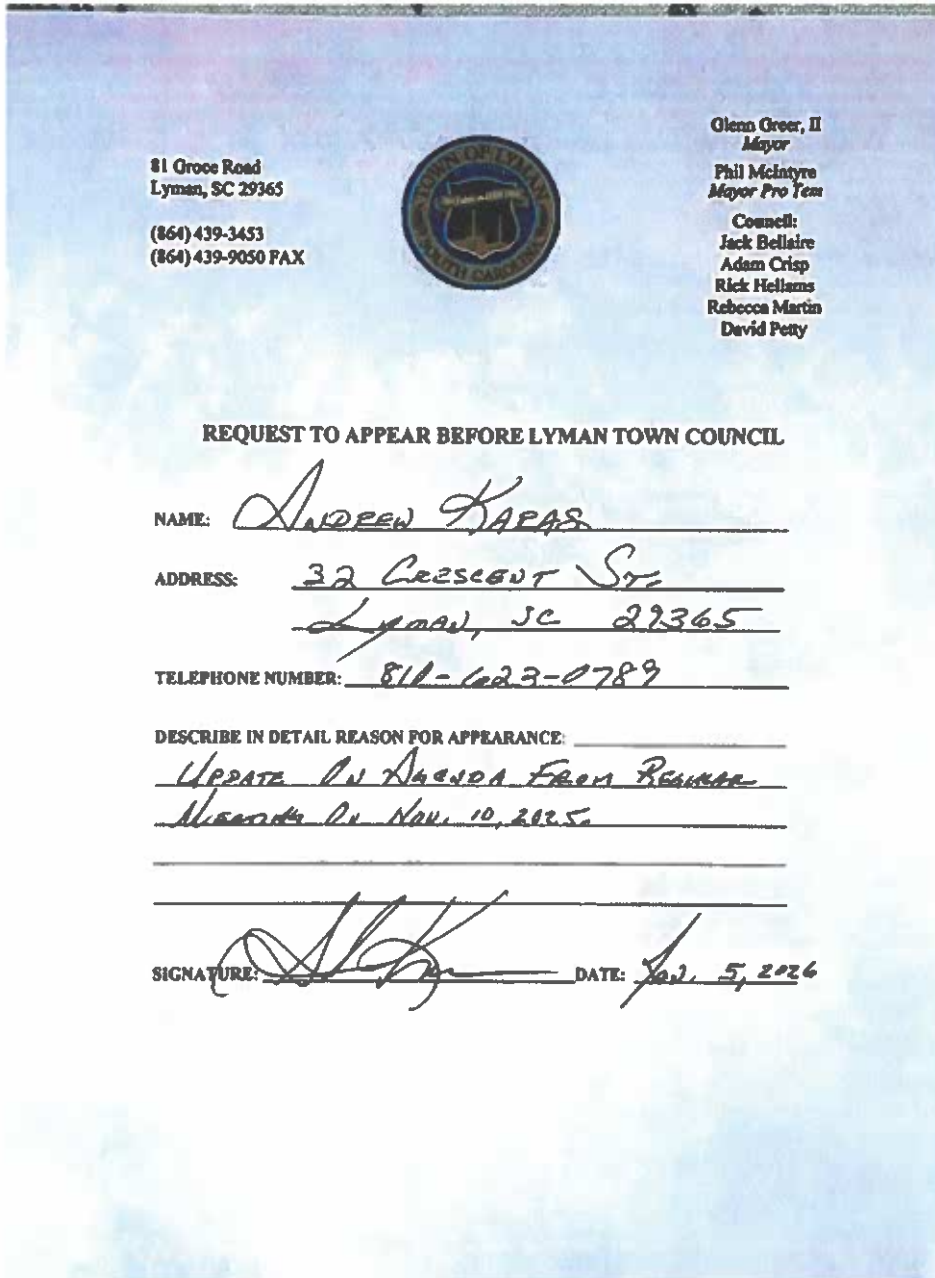 81 Groce Road
Lyman, SC 29365
(864) 439-3453
(864) 439-9050 FAX
TOWN OF LYMAN
SOUTH CAROLINA
Glenn Greer, II
Mayor
Phil McIntyre
Mayor Pro Tem
Council:
Jack Bellaire
Adam Crisp
Rick Hellams
Rebecca Martin
David Petty
REQUEST TO APPEAR BEFORE LYMAN TOWN COUNCIL
NAME: ANDREW KARAS
ADDRESS: 32 CRESCENT ST.
LYMAN, SC 29365
TELEPHONE NUMBER: 810-623-0789
DESCRIBE IN DETAIL REASON FOR APPEARANCE:
UPDATE ON AGENDA FROM REGULAR
MEETING ON NOV. 10, 2025.
SIGNATURE: DATE: JAN. 5, 2026